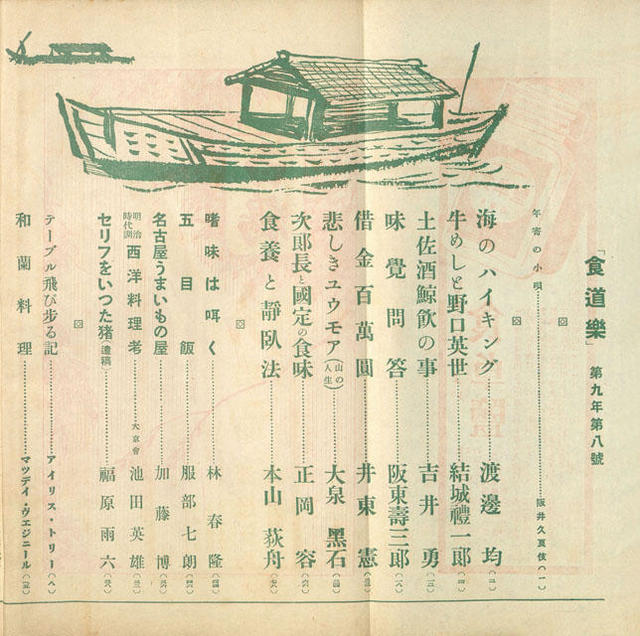 「食道樂」 第九年第八號
年寄の小唄 阪井久良伎 (一)
海のハイキング 渡邊均 (二)
牛めしと野口英世 結城禮一郎 (四)
土佐酒鯨飮の事 吉井勇
味覺問答 阪東壽三郎
借金百萬圓 井東憲
悲しきユウモア(山の人生) 大泉黑石
次郎長と國定の食味 正岡容
食養と靜臥法 本山荻舟
嗜味は呟く 林春隆
五目飯 服部七朗
名古屋うまいもの屋 加藤博
明治時代初期 西洋料理考 大京會 池田英雄
セリフをいつた猪(遺稿) 福原雨六
テーブル飛び歩る記 アイリス・トリー (八)
和蘭料理 マツデイ・ヴエジニール